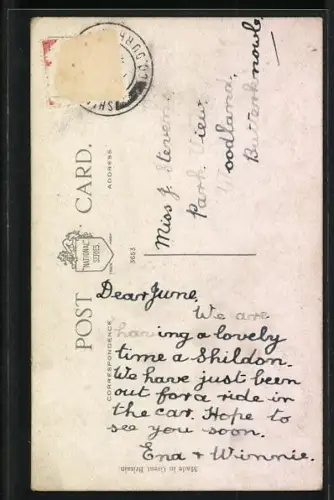 POST CARD.
CORRESPONDENCE
ADDRESS
NATIONAL SERIES
3653
Made in Great Britain.
Dear June,
We are
having a lovely
time a Shildon.
We have just been
out for a ride in
the car. Hope to
see you soon.
Ena + Winnie.
Miss J. Stevens
Park View
Woodland,
Butterknowle